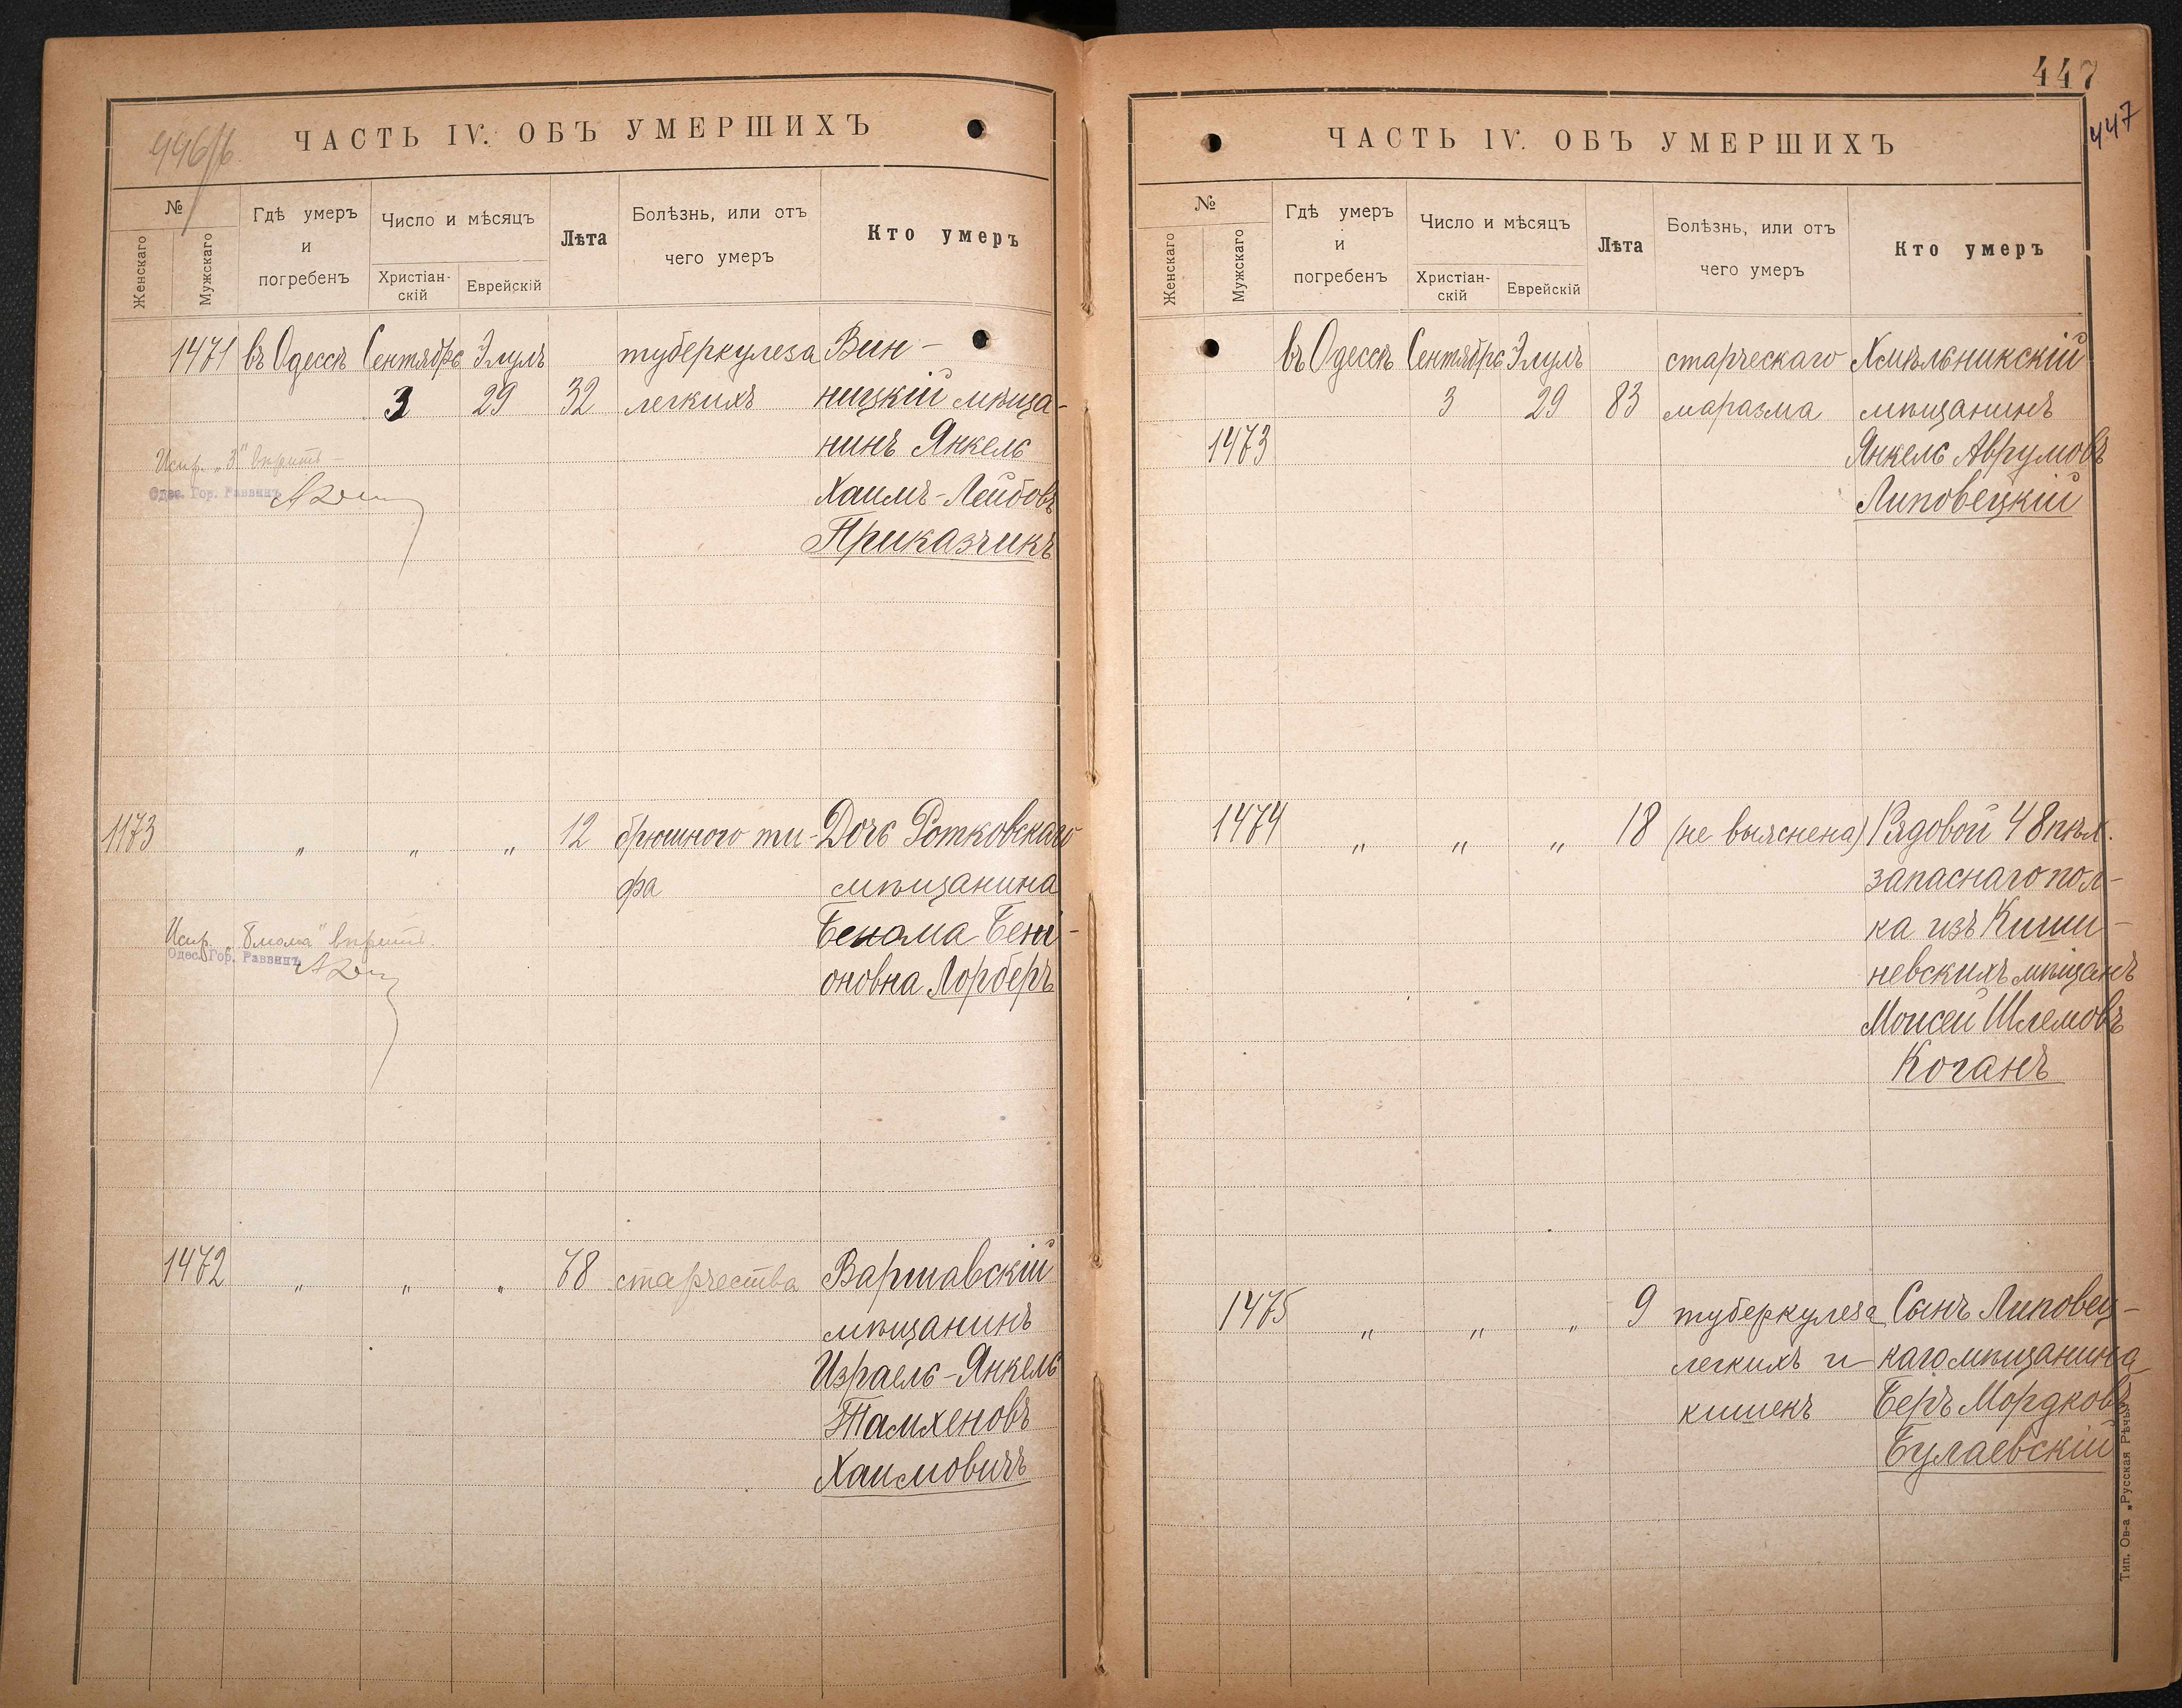 446/б
ЧАСТЬ IV. ОБЪ УМЕРШИХЪ
№
Женскаго
Мужскаго
Гдѣ умеръ и погребенъ
Число и мѣсяцъ
Христіан-скій
Еврейскій
Лѣта
Болѣзнь, или отъ чего умеръ
Кто умеръ
1471 въ Одессѣ Сентябрь Элулъ туберкулеза Вин-
3 29 32 легкихъ ницкій мѣща-
нинъ Янкель
Испр. „3" вѣрить-
Одес. Гор. Раввинъ
Хаимъ-Лейбовъ
Приказчикъ
1173 „ „ „ 12 брюшного ти- Дочь Ротковскаго
фа мѣщанина
Испр. вѣрить.
Одес. Гор. Раввинъ
Бені-
оновна Лорберъ
1472 „ „ „ 78 старчества Варшавскій
мѣщанинъ
Израель-Янкель
Тамхеновъ
Хаимовичъ
447
447
ЧАСТЬ IV. ОБЪ УМЕРШИХЪ
№
Женскаго
Мужскаго
Гдѣ умеръ и погребенъ
Число и мѣсяцъ
Христіан-скій
Еврейскій
Лѣта
Болѣзнь, или отъ чего умеръ
Кто умеръ
въ Одессѣ Сентябрь Элулъ старческаго Хмѣльникскій
3 29 83 маразма мѣщанинъ
1473 Янкель Аврумовъ
Липовецкій
1474 „ „ „ 18 (не выяснена) Рядовой 48 пѣх.
запаснаго пол-
ка изъ Киши-
невскихъ мѣщанъ
Моисей Шлемовъ
Коганъ
1475 „ „ „ 9 туберкулеза Сынъ Липовец-
легкихъ и каго мѣщанина
кишекъ Беръ Мордковъ
Булаевскій
Тип. Ов-а „Русская Рѣчь"